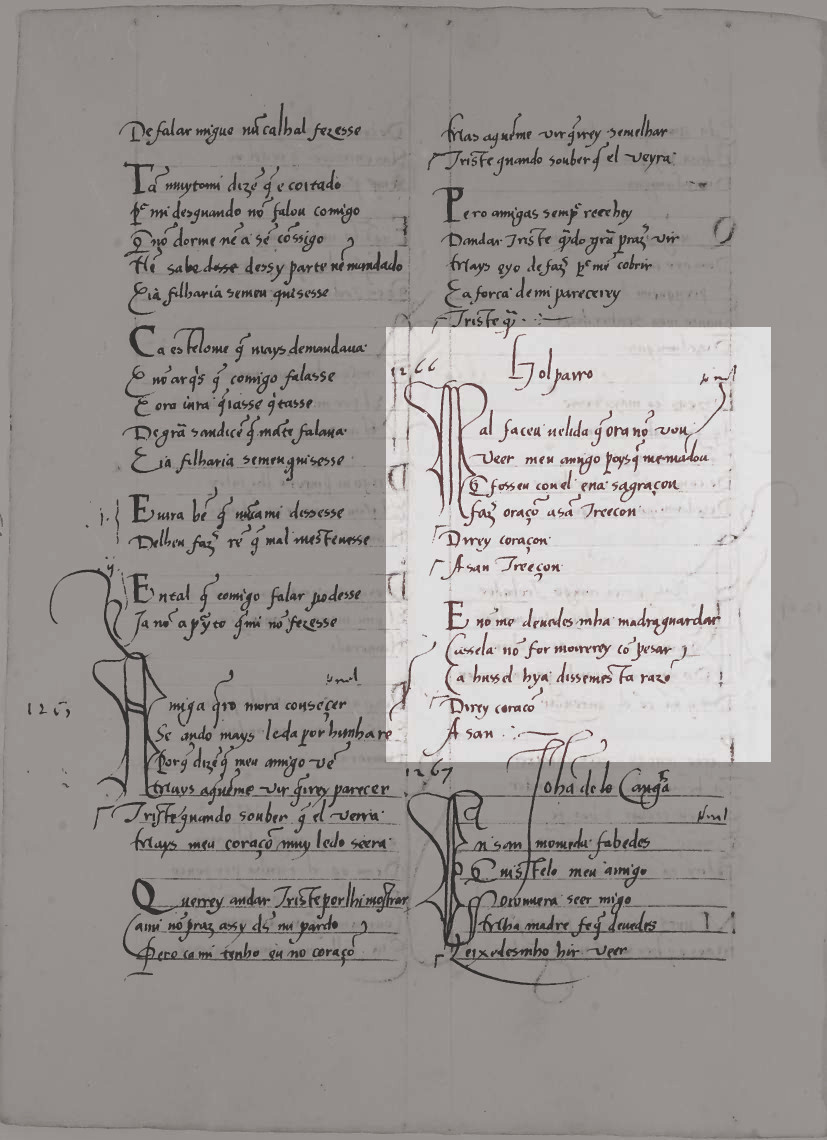 De falar migue nũcalhal fezesse
Tã muytomi dizẽ q̃ e coitado
Pᵉ mi desquando nõ falou comigo
Q̃ nõ dorme nẽ a sẽ cõssigo
Nẽ sabe desse dessy parte nẽ mandado
E ia filharia semeu quisesse
Ca es telome q̃ mays demandaua
E nõ arq̃s q̃ comigo falasse
De grã sandicẽ q̃ mate falaua
E ia filharia semeu quisesse
E uira bẽ q̃ nũcami dissesse
Delheu faz̃ rẽ q̃ mal mestevesse
E ntal q̃ comigo falar podesse
Ja nõ a p̃yto q̃mi nõ fezesse
1265
A miga q̃ro mora conseçer
Se ando mays leda por hunha re
Porq̃ dizẽ q̃ meu amigo vẽ
Mays aquẽme vir q̃rey parecer
Triste quando souber q̃ el verria
Mays meu coraçõ muy ledo seera
Q uerrey andar Triste por lhi mostrar
Ca mi nõ praz assy ds̃ mi pardo
Pero ca mi tenho eu no coraçõ
Mays aquẽme vir q̃rey semelhar
Triste quando souber q̃ el veyra
P ero amigas semp̃ reechey
Dandar Triste q̃do grã praz̃ vir
Mays eyo de faz̃ pᵉ me cobrir
Ca força de mi parecerey
Triste q̃
1266
Golparro
M al faceu uelida q̃ ora nõ vou
Veer meu amigo poys q̃ memandou
Q̃ fosseu con el ena sagraçon
faz̃ oraçõ a sã Treeçon
Direy coraçon
A san Treeçon
E nome deuedes mha madraguardar
Cassela nõ for moirerey cõ pesar
Ca hussel hya dissemesta razõ
Direy coracõ
A san
1267
Joha de lo Cangãs
E n san momedu sabedes
Q uistelo meu amigo
Oiouuera seer migo
Mha madre fe q̃ deuedes
Leixedesmho hir veer